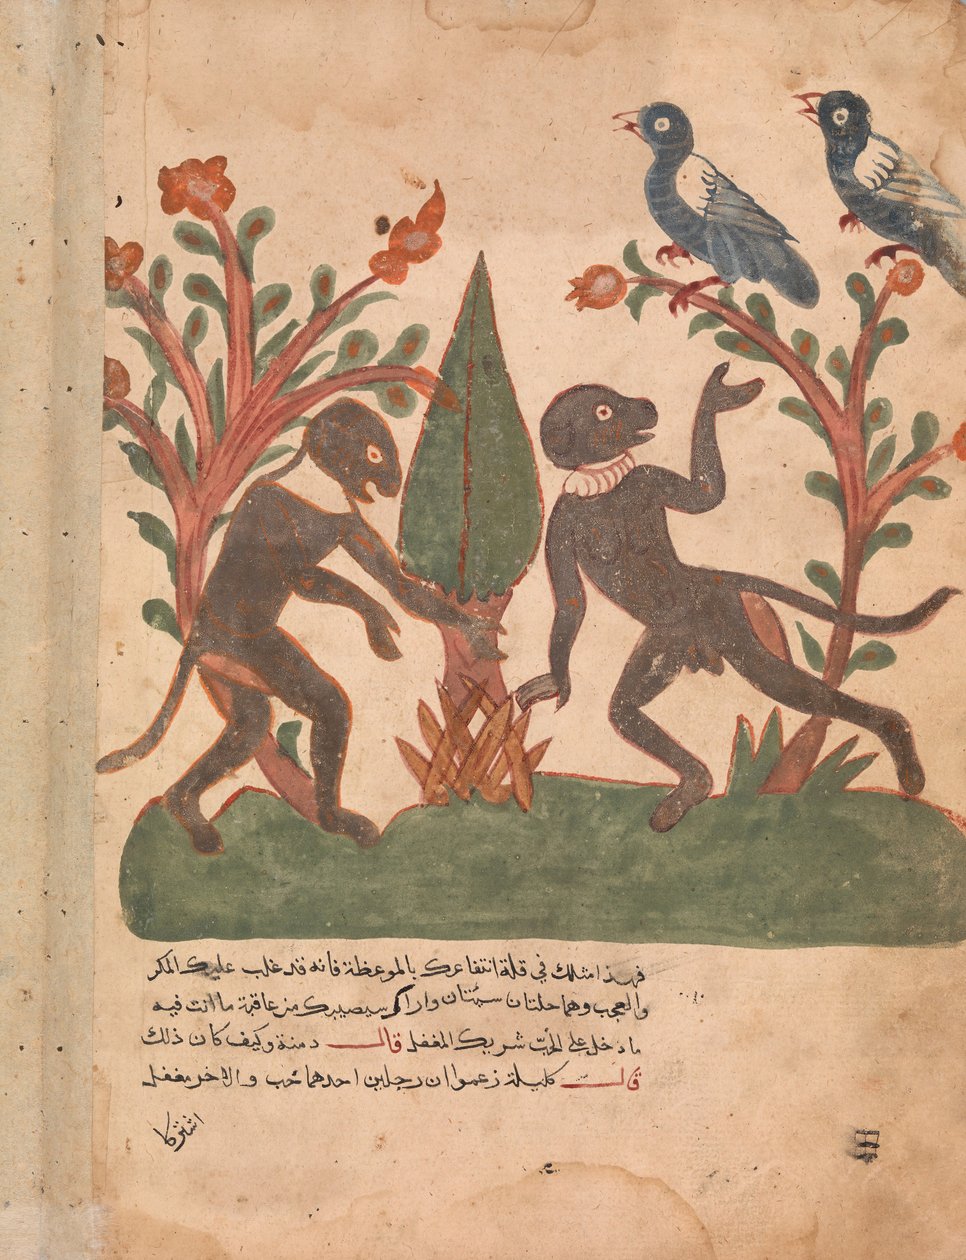 فهذا مثلك في قلة انتفاعك بالموعظة فانه قد غلب عليك المكر
والعجب وهما خلتان سيئتان واراك سيصيبك من عاقبة ما انت فيه
ما دخل على الخب شريك المغفل قالــ دمنة وكيف كان ذلك
قالــ كليلة زعموا ان رجلين احدهما خب والاخر مغفل
اشتركا